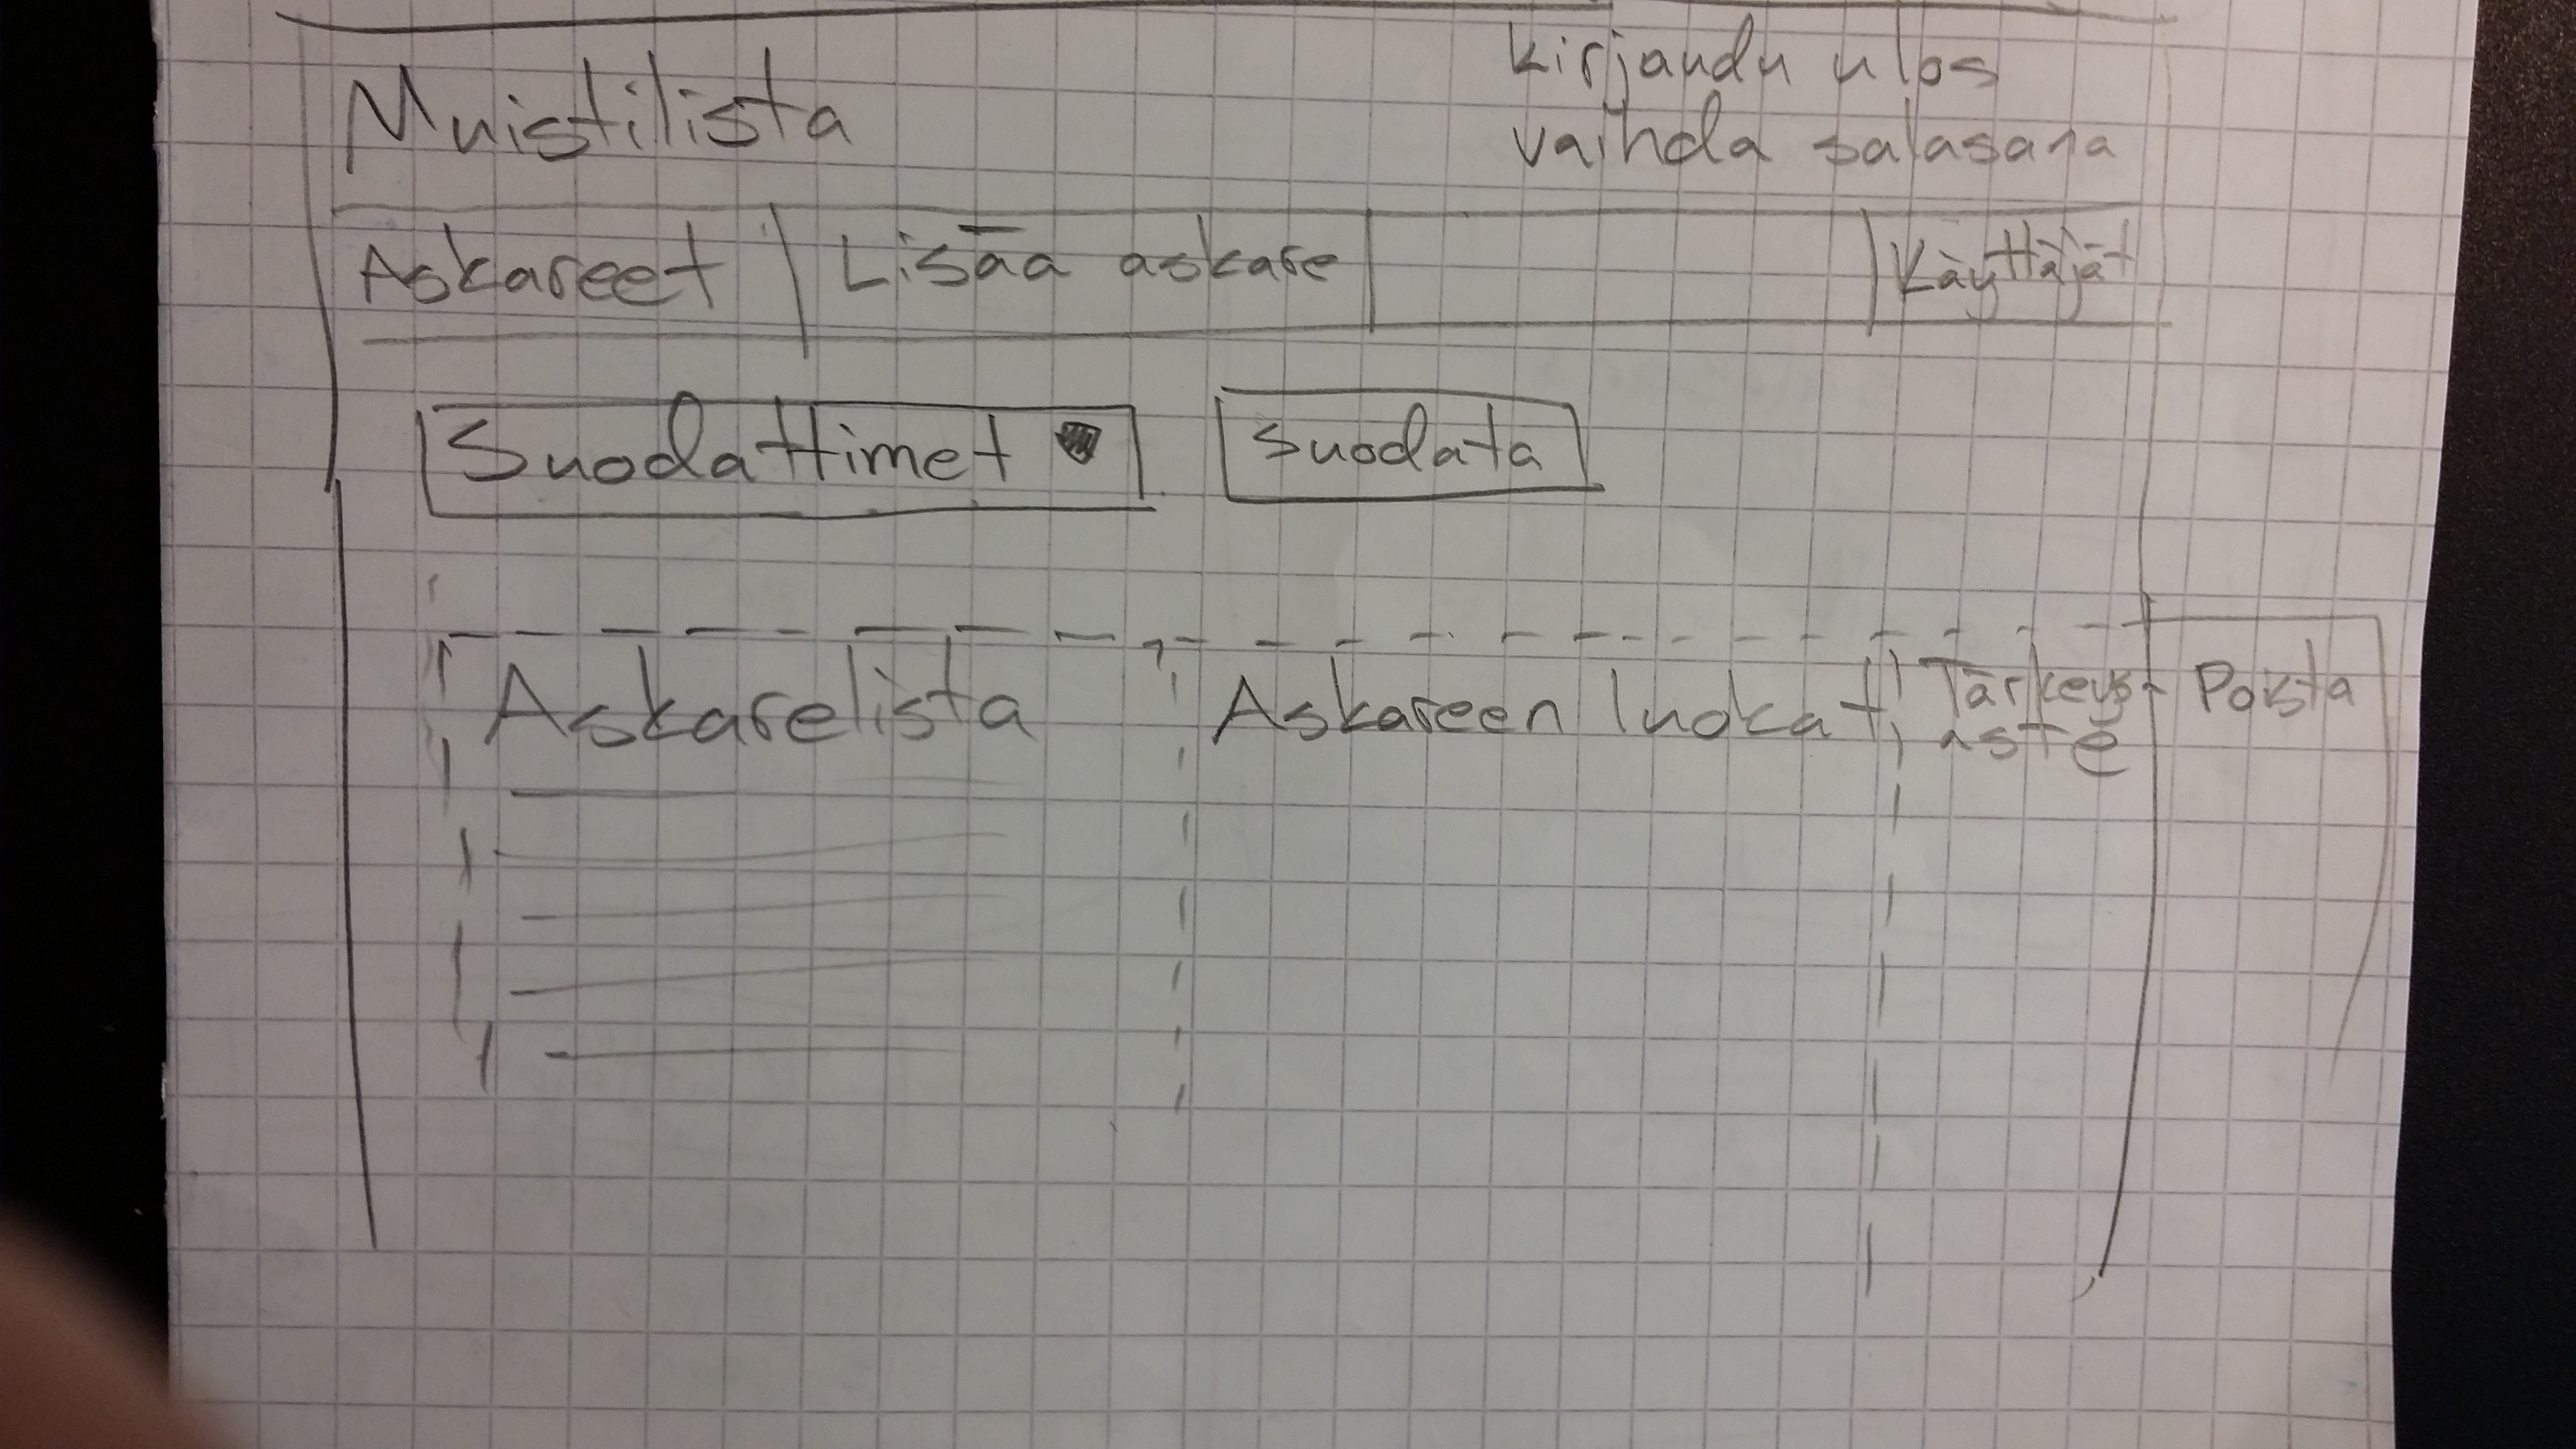 Muistilista
kirjaudu ulos
vaihda salasana
Askareet
Lisää askare
Käyttäjät
Suodattimet
Suodata
Askarelista
Askareen luokat
Tärkeys-
aste
Poista